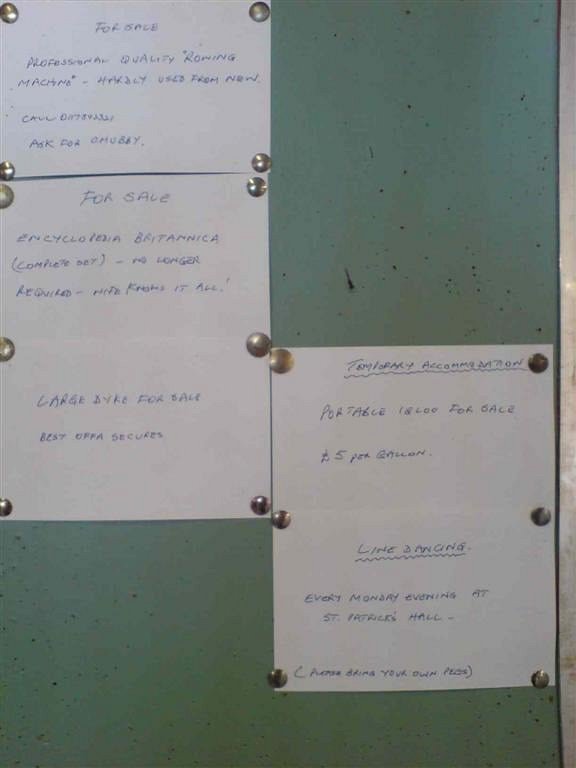 FOR SALE
PROFESSIONAL QUALITY "ROWING
MACHINE" - HARDLY USED FROM NEW.
CALL
ASK FOR CHUBBY.
FOR SALE
ENCYCLOPEDIA BRITANNICA
(COMPLETE SET) - NO LONGER
REQUIRED - WIFE KNOWS IT ALL!
LARGE DYKE FOR SALE
BEST OFFA SECURES
TEMPORARY ACCOMMODATION
PORTABLE IGLOO FOR SALE
£5 PER GALLON.
LINE DANCING.
EVERY MONDAY EVENING AT
ST. PATRICK'S HALL -
(PLEASE BRING YOUR OWN PEGS)